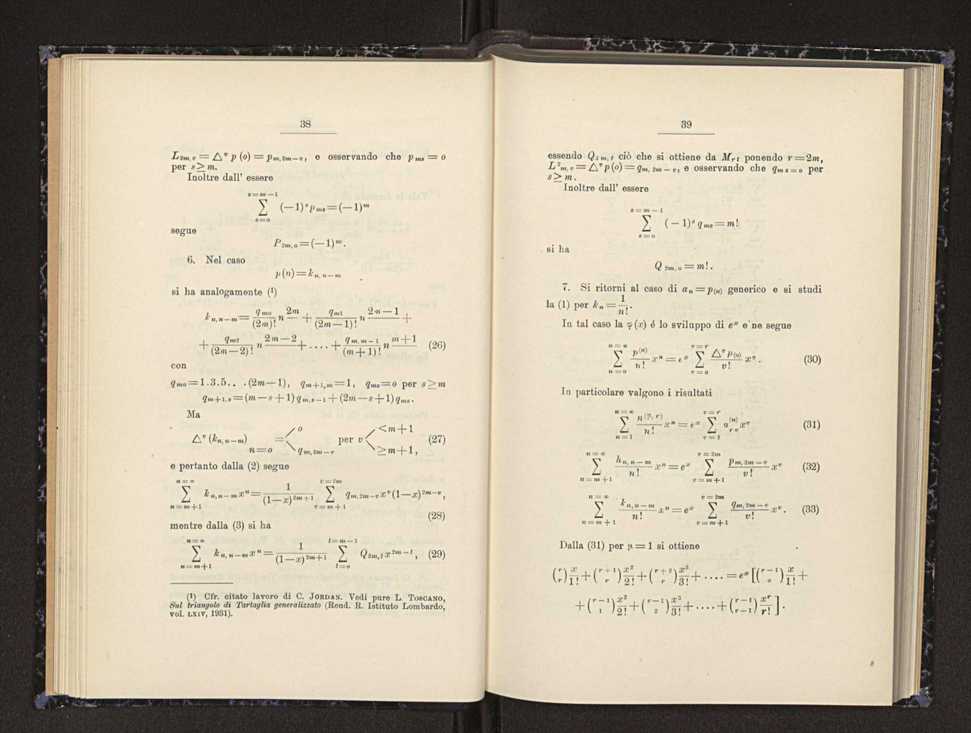 38
L₂ₘ,ᵥ = △ᵛ p (o) = pₘ,₂ₘ₋ᵥ, e osservando che pₘₛ = o
per s ≥ m.
Inoltre dall' essere
s=m−1 ∑ s=o (−1)ˢ pₘₛ = (−1)ᵐ
segue
P₂ₘ,ₒ = (−1)ᵐ.
6. Nel caso
p(n) = kₙ,ₙ₋ₘ
si ha analogamente (¹)
kₙ,ₙ₋ₘ = qₘₒ/(2m)! n^{2m} + qₘ₁/(2m−1)! n^{2m−1} +
+ qₘ₂/(2m−2)! n^{2m−2} + .... + q_{m,m−1}/(m+1)! n^{m+1} (26)
con
qₘₒ = 1.3.5.. .(2m−1), q_{m+1,m} = 1, qₘₛ = o per s ≥ m
q_{m+1,s} = (m−s+1) q_{m,s−1} + (2m−s+1) qₘₛ.
Ma
△ᵛ (k_{n,n−m}) n=o = < o / q_{m,2m−v} per v < <m+1 / ≥m+1, (27)
e pertanto dalla (2) segue
n=∞ ∑ n=m+1 k_{n,n−m} xⁿ = 1/(1−x)^{2m+1} v=2m ∑ v=m+1 q_{m,2m−v} xᵛ (1−x)^{2m−v},
(28)
mentre dalla (3) si ha
n=∞ ∑ n=m+1 k_{n,n−m} xⁿ = 1/(1−x)^{2m+1} l=m−1 ∑ l=o Q_{2m,l} x^{2m−l}, (29)
(¹) Cfr. citato lavoro di C. JORDAN. Vedi pure L. TOSCANO,
Sul triangolo di Tartaglia generalizzato (Rend. R. Istituto Lombardo,
vol. LXIV, 1931).
39
essendo Q_{2m,t} ciò che si ottiene da M_{rt} ponendo r = 2m,
L²_{m,v} = △ᵛ p(o) = q_{m,2m−v}, e osservando che q_{ms=o} per
s ≥ m.
Inoltre dall' essere
s=m−1 ∑ s=o (−1)ˢ qₘₛ = m!
si ha
Q_{2m,o} = m!.
7. Si ritorni al caso di aₙ = p₍ₙ₎ generico e si studi
la (1) per kₙ = 1/n!.
In tal caso la φ(x) é lo sviluppo di eˣ e ne segue
n=∞ ∑ n=o p^{(n)}/n! xⁿ = eˣ v=r ∑ v=o △ᵛ p₍ₒ₎/v! xᵛ. (30)
In particolare valgono i risultati
n=∞ ∑ n=1 n^{(p, r)}/n! xⁿ = eˣ v=r ∑ v=1 a_{rv}^{(n)} xᵛ (31)
n=∞ ∑ n=m+1 h_{n,n−m}/n! xⁿ = eˣ v=2m ∑ v=m+1 p_{m,2m−v}/v! xᵛ (32)
n=∞ ∑ n=m+1 k_{n,n−m}/n! xⁿ = eˣ v=2m ∑ v=m+1 q_{m,2m−v}/v! xᵛ. (33)
Dalla (31) per μ = 1 si ottiene
(r r) x/1! + (r+1 r) x²/2! + (r+2 r) x³/3! + .... = eˣ [(r−1 o) x/1! +
+ (r−1 1) x²/2! + (r−1 2) x³/3! + .... + (r−1 r−1) xʳ/r!].